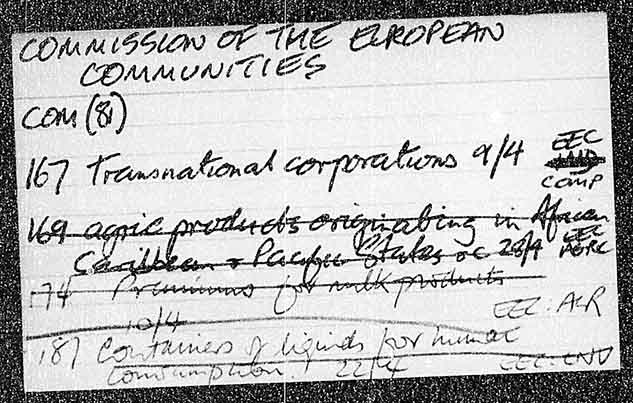 COMMISSION OF THE EUROPEAN
COMMUNITIES
COM (81)
167 Transnational corporations 9/4 EEC
COMP
169 agric products originating in African
Caribbean & Pacific States 28/4 EEC AGRC
174 Premiums for milk products
10/4 EEC: AGR
187 Containers of liquids for human
consumption 22/4 EEC: ENV